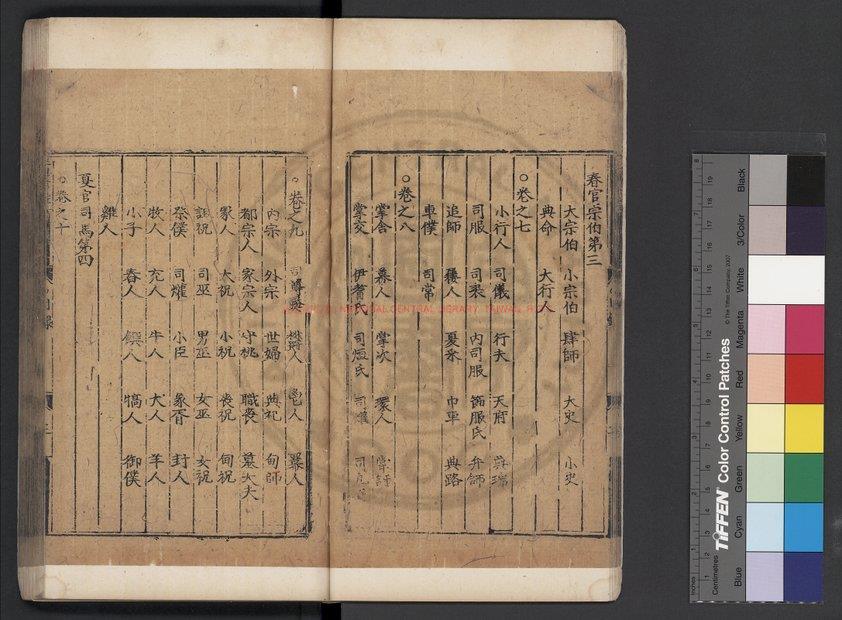 春官宗伯第三
大宗伯 小宗伯 肆師 大史 小史
典命 大行人
○卷之七
小行人 司儀 行夫 天府
司服 司裘 內司服 節服氏 弁師
追師 屨人 夏采 巾車 典路
車僕 司常
○卷之八
掌舍 幕人 掌次 環人 掌訝
掌交 伊耆氏 司烜氏
○卷之九
鬯人
內宗 外宗 世婦 典祀 甸師
都宗人 家宗人 守祧 職喪 墓大夫
冢人 大祝 小祝 喪祝 甸祝
詛祝 司巫 男巫 女巫 女祝
祭僕 司爟 小臣 象胥 封人
牧人 充人 牛人 犬人 羊人
小子 舂人 饎人 犒人 御僕
雞人
夏官司馬第四
○卷之十
NATIONAL CENTRAL LIBRARY, TAIWAN, R
TIFFEN® Color Control Patches
© The Tiffen Company, 2007
Blue Cyan Green Yellow Red Magenta White 3/Color Black
Inches
Centimetres